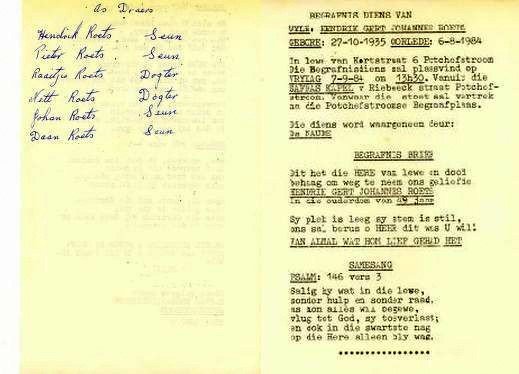 As Draers
Hendrick Roets Seun
Pieter Roets Seun
Raaitjie Roets Dogter
Nett Roets Dogter
Johan Roets Seun
Daan Roets Seun
BEGRAFNIS DIENS VAN
WYLE, HENDRIK GERT JOHANNES ROETS
GEBORE: 27-10-1935 OORLEDE: 6-8-1984
In lewe van Kortstraat 6 Potchefstroom
Die Begrafnisdiens sal plaasvind op
VRYDAG 7-9-84 on 13h30. Vanuit die
SAFFAS KAPEL v Riebeeck straat Potchef-
stroom Vanwaar die stoet sal vertrek
na die Potchefstroomse Begraafplaas.
Die diens word waargeneem deur:
Ds NAUDE
BEGRAFNIS BRIEF
Dit het die HERE van lewe en dood
behaag om weg te neem ons geliefde
HENDRIK GERT JOHANNES ROETS
In die ouderdom van 49 jaar
Sy plek is leeg sy stem is stil,
ons sal berus o HEER dit was U wil
VAN ALMAL WAT HOM LIEF GEHAD HET
SAMESANG
PSALM: 146 vers 3
Salig hy wat in die lewe,
sonder hulp en sonder raad,
as hom alles wil begewe,
vlug tot God, sy toeverlaat;
en ook in die swartste nag
op die Here alleen bly wag.